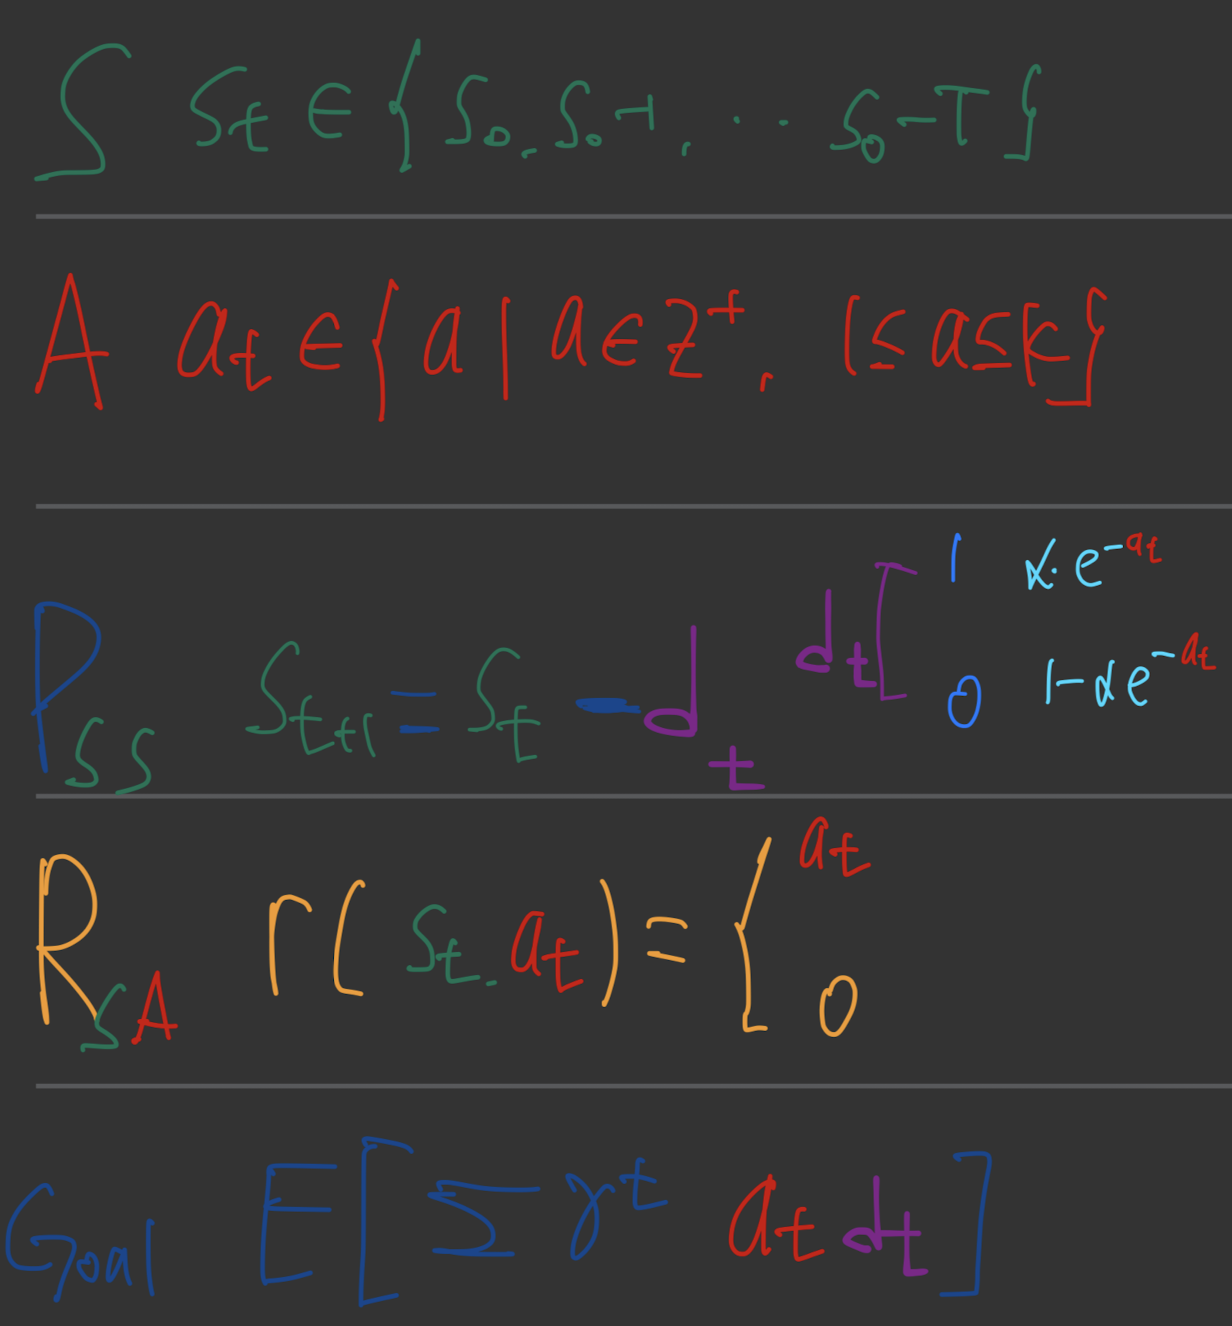 S  S_t ∈ { S_0, S_0-1, ... S_0-T }
A  a_t ∈ { a | a ∈ Z^+, 1 ≤ a ≤ k }
P_SS  S_{t+1} = S_t - d_t  d_t [ 1  α·e^{-a_t}
0  1-αe^{-a_t}
R_SA  r(S_t, a_t) = { a_t
0
Goal  E[ Σ γ^t a_t d_t ]